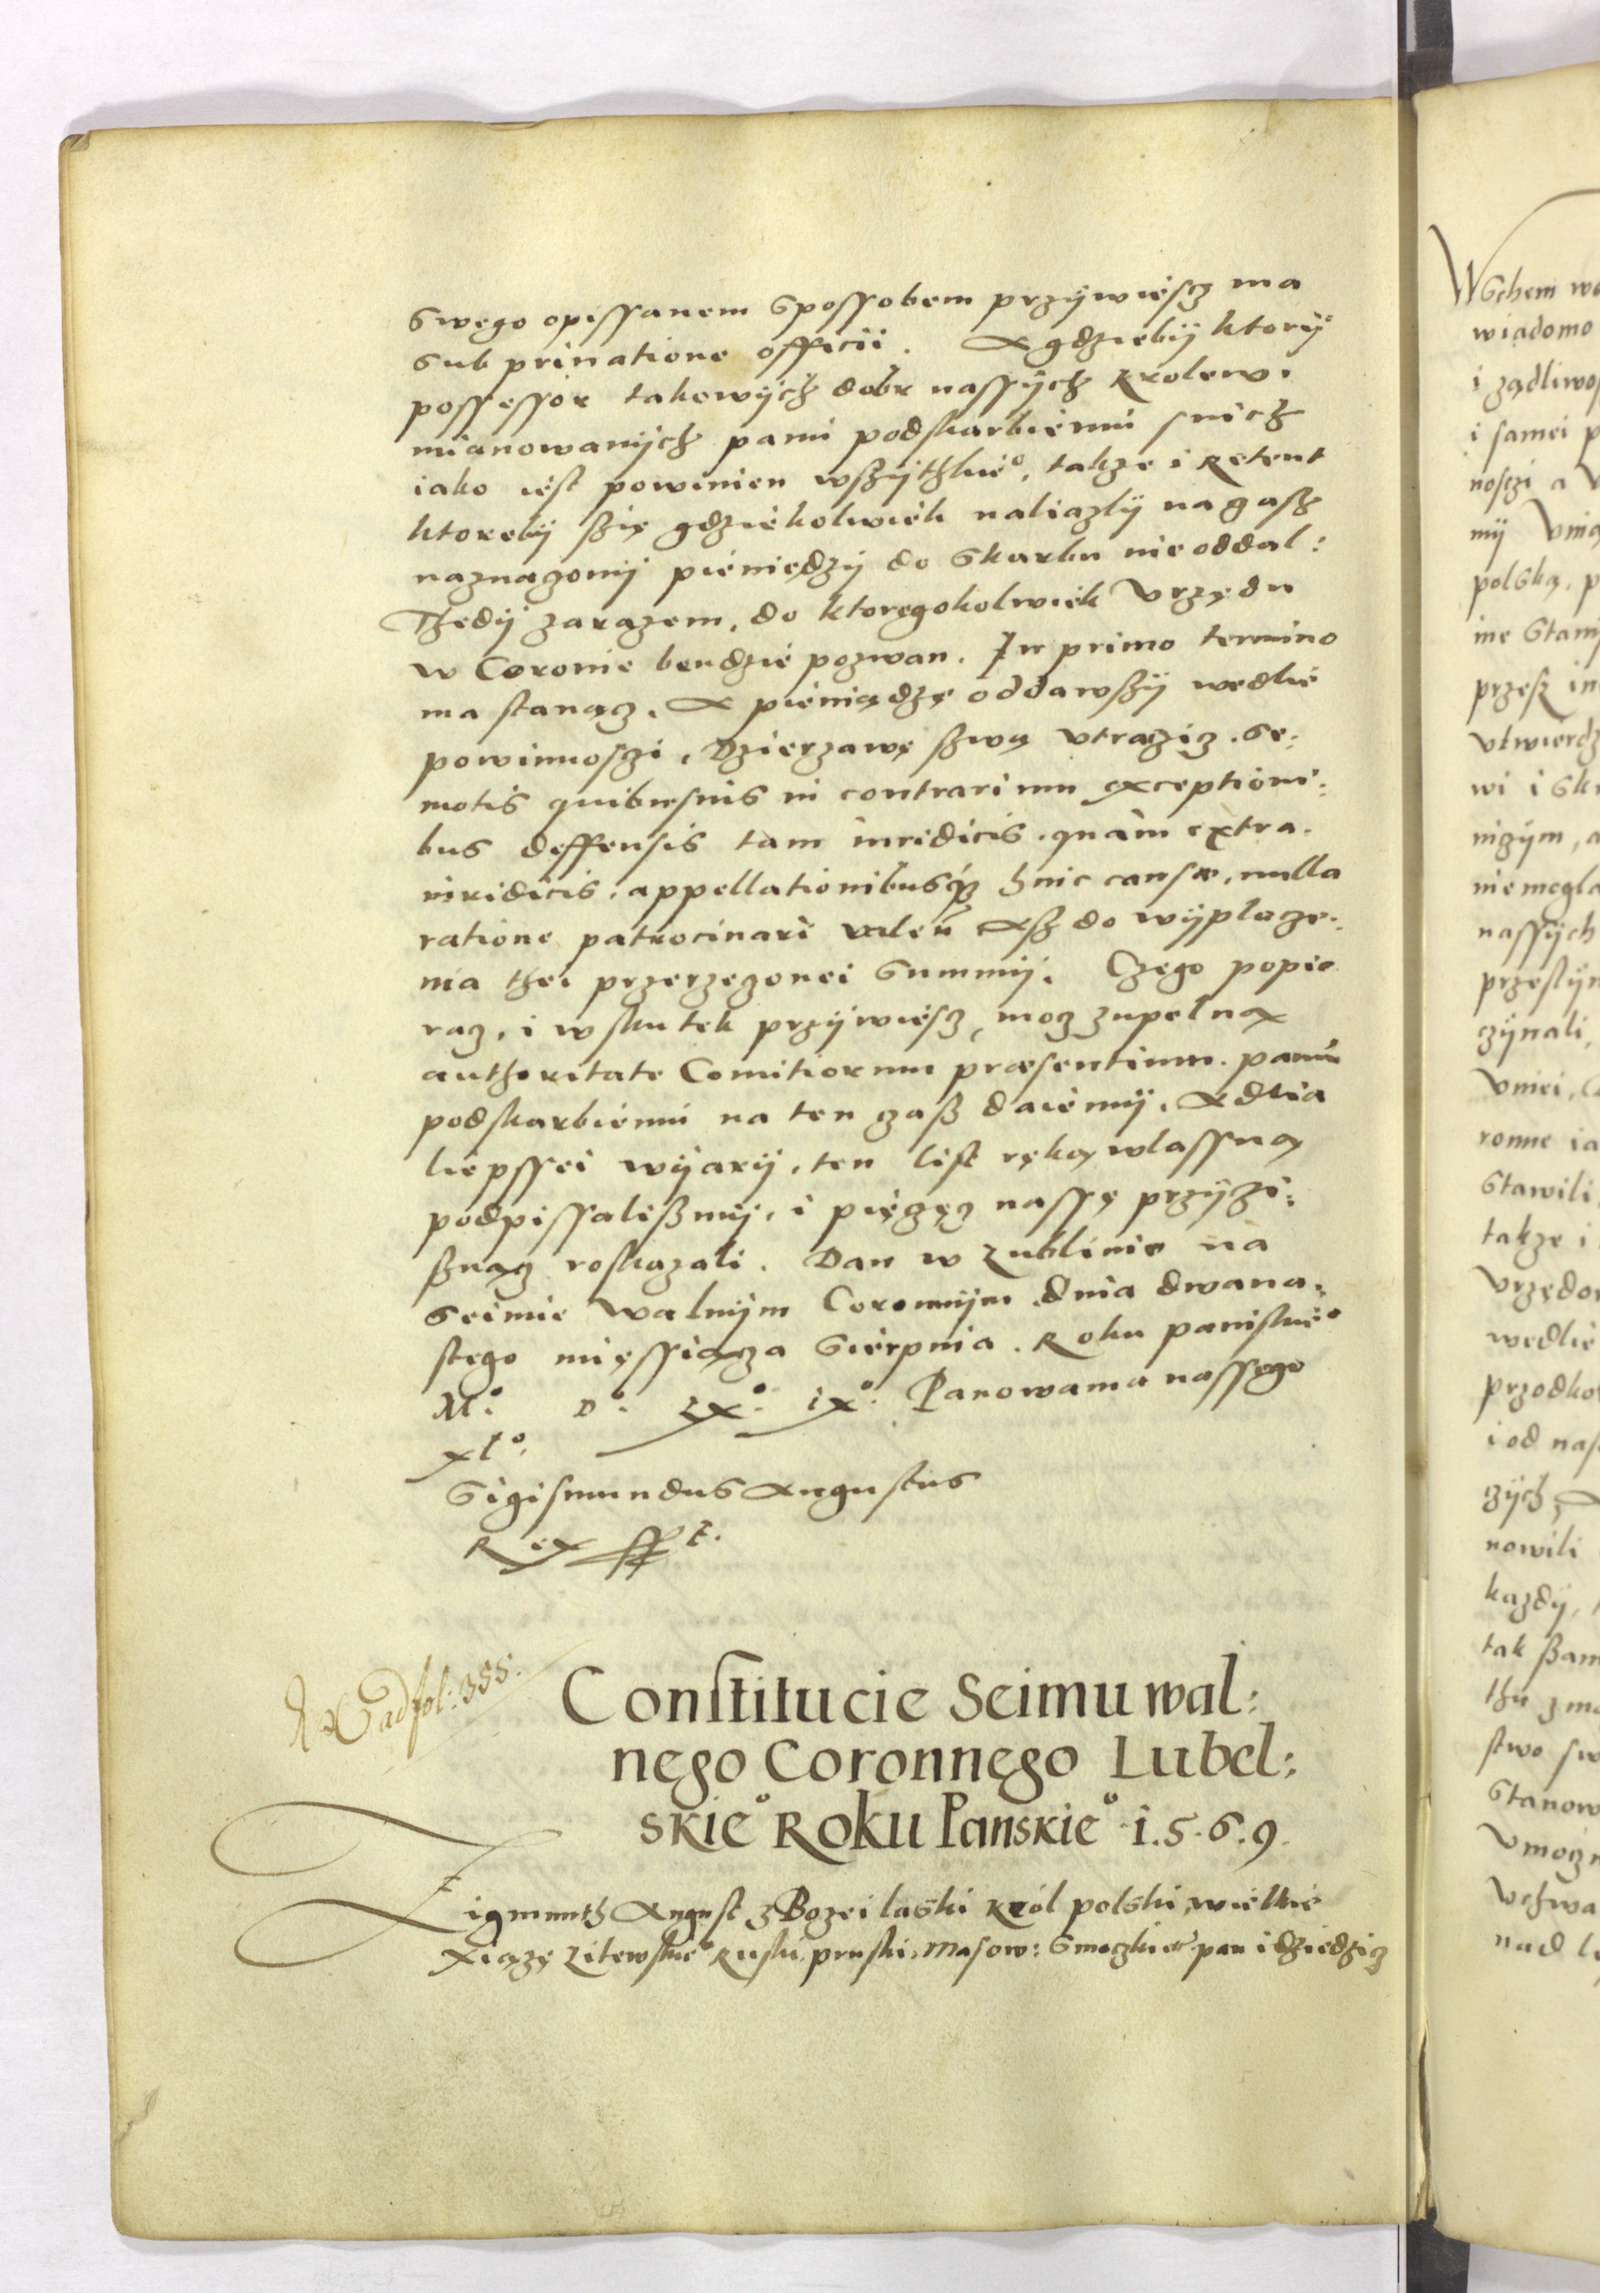 swęgo opissanem spossobem przÿwiescz ma
sub priuatione officii. A gdziebÿ ktorÿ
possessor takowÿch dobr nassÿch krolew:
mianowanÿch panu podskarbiemu snich
iako iest powinien wßÿthkie°, takze i retent
ktorebÿ ßię gdziekolwiek naliazlÿ na czasz
naznaczonÿ pieniędzÿ do skarbu nie oddal:
Thedÿ zarazem, do ktoregokolwiek Vrzędu
w Coronie bendzie pozwan. In primo termino
ma stanącz. A pieniądzę oddawßÿ wedlie
powinnosczi, Dzierzawę ßwą vtraczicz. Se-
motis quibusuis in contrarium exceptioni:
bus deffensis tam iuridicis quàm extra-
iuridicis, appellationibusq3 huic causæ, nulla
ratione patrocinari valeñ Asz do wÿplacze-
nia thei przerzeczonei summÿ. Czego popie
racz, i w skutek przÿwiescz, mocz zupelną
authoritate Comitiorum præsentium. panu
podskarbiemu na ten czaß daiemÿ. A dlia
liepssei wÿarÿ, ten list ręką wlassną
podpissalißmÿ, i pięczęcz nassę przÿczi:
ßnącz roskazali. Dan w Lublinie na
seimie walnÿm Coronnÿm dnia dwana-
stego mięssiącza Sierpnia. Roku paniskie°
M°. D°. LX°. iX°. Panowania nassęgo
xl°.
Sigismundus Augustus
Rex sst.
ad fol: 355.
Constitucie Seimu wal:
nego Coronnego Lubel:
skie° Roku Panskie° 1.5.6.9.
Zigmunth August z Bozei laski Król polski, wielkie
Xiązę Litewskie° Ruski, pruski, Masow: Smoczkie° pan i dziedzicz
Wschem wo
wiadomo
i żądliwoś
i samei p
nosczi a V
mÿ Vnią
polską, p
ine stanÿ
przesz in
vtwierdz
wi i sku
niczÿm, a
nie mogla
nassÿch
przestÿn
czÿnali,
Vniei, C
ronne ia
stawili
takze i
Vrzędo
wedlie
przodko
i od nas
czÿch, A
nowili
kazdÿ,
tak ßam
thu z ma
stwo sw
Stanow
Vmoczn
Vchwa
nad li